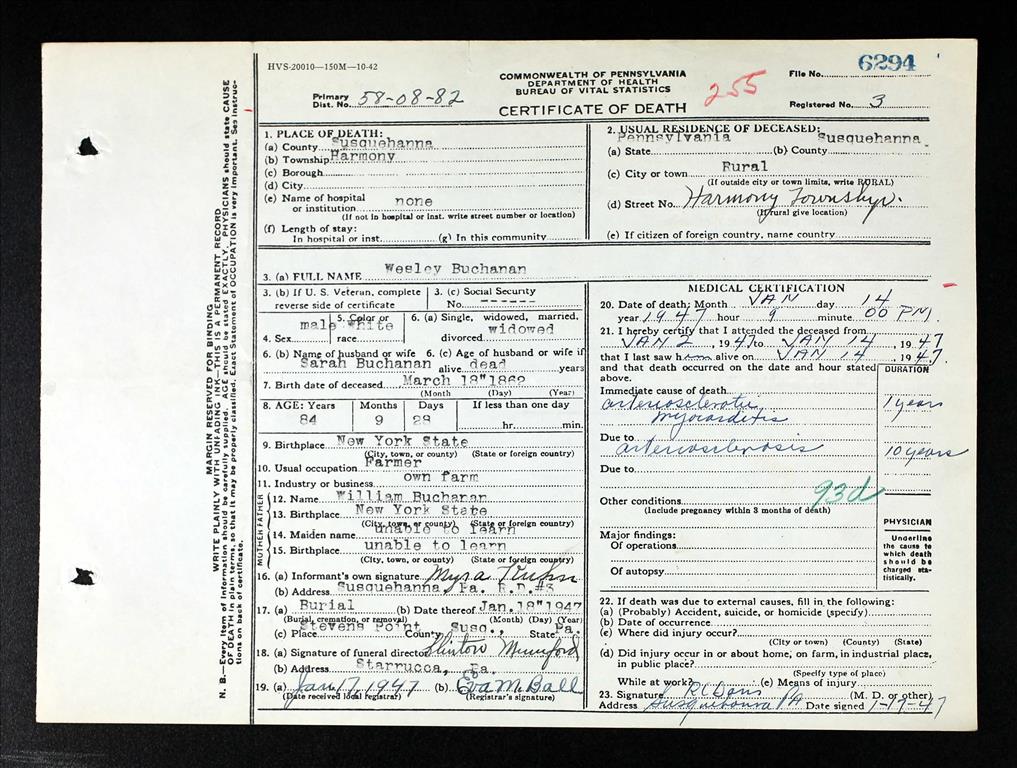 HVS-20010—150M—10-42
COMMONWEALTH OF PENNSYLVANIA
DEPARTMENT OF HEALTH
BUREAU OF VITAL STATISTICS
CERTIFICATE OF DEATH
255
File No. 6294
Primary Dist. No. 58-08-82
Registered No. 3
MARGIN RESERVED FOR BINDING
WRITE PLAINLY WITH UNFADING INK—THIS IS A PERMANENT RECORD
N. B.—Every item of information should be carefully supplied. AGE should be stated EXACTLY. PHYSICIANS should state CAUSE
OF DEATH in plain terms, so that it may be properly classified. Exact Statement of OCCUPATION is very important. See instruc-
tions on back of certificate.
1. PLACE OF DEATH:
(a) County Susquehanna
(b) Township Harmony
(c) Borough
(d) City
(e) Name of hospital
or institution none
(If not in hospital or inst. write street number or location)
(f) Length of stay:
In hospital or inst. (g) In this community
2. USUAL RESIDENCE OF DECEASED:
Pennsylvania Susquehanna
(a) State (b) County
(c) City or town Rural
(If outside city or town limits, write RURAL)
(d) Street No. Harmony Township.
(If rural give location)
(e) If citizen of foreign country, name country
3. (a) FULL NAME Wesley Buchanan
3. (b) If U. S. Veteran, complete
reverse side of certificate
3. (c) Social Security
No. ------
4. Sex male
5. Color or
race White
6. (a) Single, widowed, married,
divorced widowed
6. (b) Name of husband or wife
Sarah Buchanan
6. (c) Age of husband or wife if
alive dead years
7. Birth date of deceased March 18"1862
(Month) (Day) (Year)
8. AGE: Years Months Days If less than one day
84 9 28 hr. min.
9. Birthplace New York State
(City, town, or county) (State or foreign country)
10. Usual occupation Farmer
11. Industry or business own farm
FATHER
12. Name William Buchanan
13. Birthplace New York State
(City, town, or county) (State or foreign country)
MOTHER
14. Maiden name unable to learn
15. Birthplace unable to learn
(City, town, or county) (State or foreign country)
16. (a) Informant's own signature Myra
(b) Address Susquehanna, Pa. R.D.#3
17. (a) Burial (b) Date thereof Jan.18"1947
(Burial, cremation, or removal) (Month) (Day) (Year)
(c) Place Stevens Point County Susq., State Pa.
18. (a) Signature of funeral director Clinton Mumford
(b) Address Starrucca, Pa.
19. (a) Jan 17, 1947 (b) Eva M. Ball
(Date received local registrar) (Registrar's signature)
MEDICAL CERTIFICATION
20. Date of death: Month JAN day 14
year 1947 hour 9 minute 00 PM.
21. I hereby certify that I attended the deceased from
JAN 2, 1947 to JAN 14, 1947
that I last saw him alive on JAN 14 1947.
and that death occurred on the date and hour stated
above.
DURATION
Immediate cause of death
arteriosclerotic
myocarditis
1 years
Due to
arteriosclerosis
10 years
Due to
93d
Other conditions
(Include pregnancy within 3 months of death)
Major findings:
Of operations
Of autopsy
PHYSICIAN
Underline
the cause to
which death
should be
charged sta-
tistically.
22. If death was due to external causes, fill in the following:
(a) (Probably) Accident, suicide, or homicide (specify)
(b) Date of occurrence
(c) Where did injury occur?
(City or town) (County) (State)
(d) Did injury occur in or about home, on farm, in industrial place,
in public place?
(Specify type of place)
While at work? (e) Means of injury
23. Signature (M. D. or other)
Address Susquehanna PA Date signed 1-17-47